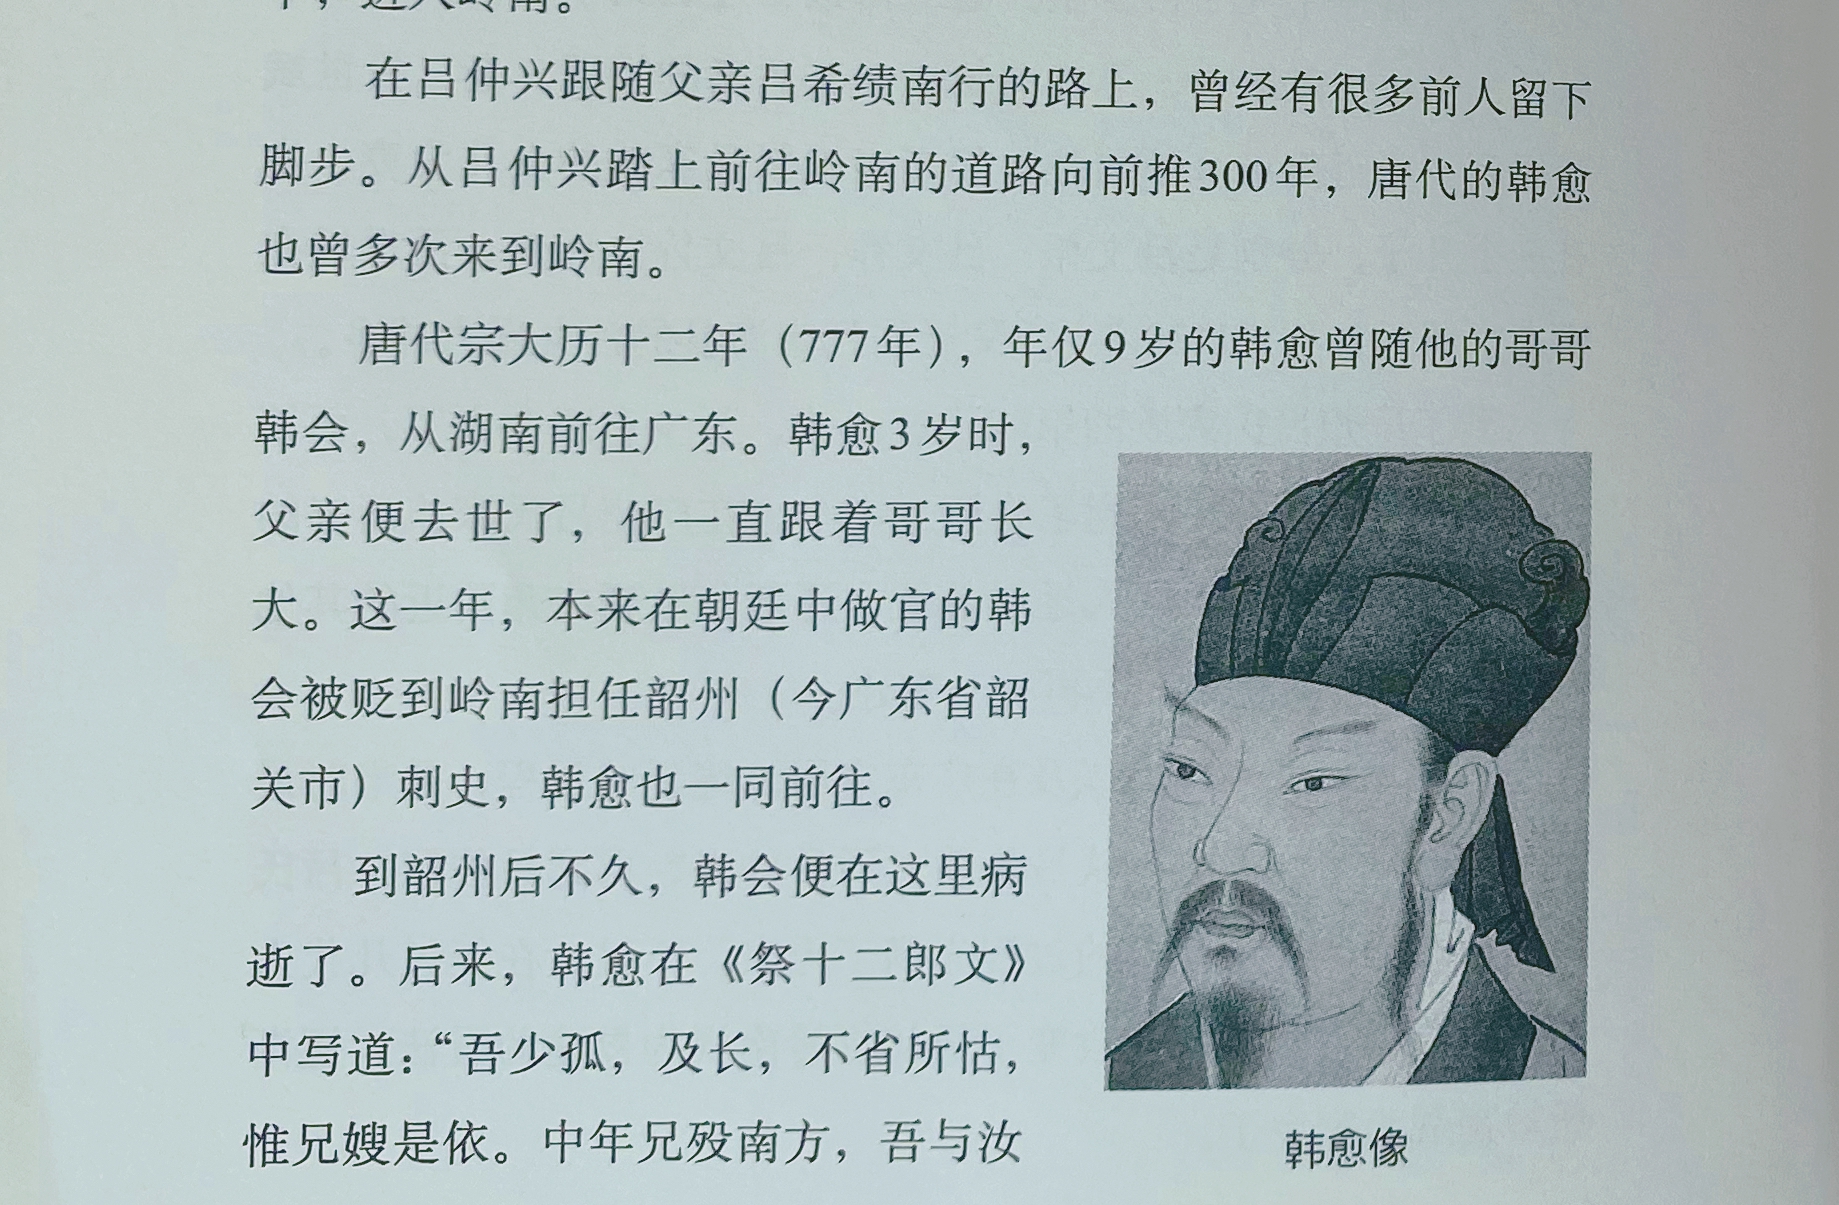 年，进入岭南。
在吕仲兴跟随父亲吕希绩南行的路上，曾经有很多前人留下
脚步。从吕仲兴踏上前往岭南的道路向前推300年，唐代的韩愈
也曾多次来到岭南。
唐代宗大历十二年（777年），年仅9岁的韩愈曾随他的哥哥
韩会，从湖南前往广东。韩愈3岁时，
父亲便去世了，他一直跟着哥哥长
大。这一年，本来在朝廷中做官的韩
会被贬到岭南担任韶州（今广东省韶
关市）刺史，韩愈也一同前往。
到韶州后不久，韩会便在这里病
逝了。后来，韩愈在《祭十二郎文》
中写道：“吾少孤，及长，不省所怙，
惟兄嫂是依。中年兄殁南方，吾与汝
韩愈像